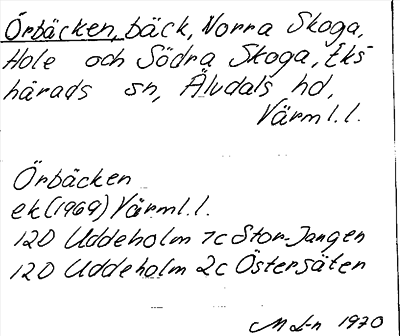 Örbäcken, bäck, Norra Skoga,
Hole och Södra Skoga, Eks-
härads sn, Älvdals hd,
Värml.l.
Örbäcken
ek (1969) Värml.l.
12D Uddeholm 7c Stor-Jangen
12D Uddeholm 2c Östersäten
M L-n 1970